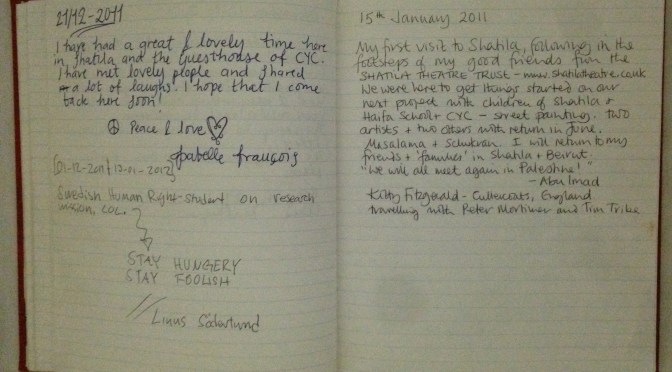 21/12-2011
I have had a great & lovely time here
in Shatila and the Guesthouse of CYC.
I have met lovely people and shared
a lot of laughs. I hope that I come
back here soon!
Peace & love
Isabelle François
(01-12-2011 / 12-01-2012)
Swedish Human Right-student on research
mission, COL.
STAY HUNGERY
STAY FOOLISH
Linus Söderlund
15th January 2011
My first visit to Shatila, following in the
footsteps of my good friends from the
SHATILA THEATRE TRUST - www.shatilatheatre.co.uk
We were here to get things started on our
next project with children of Shatila &
Haifa School & CYC - street painting. Two
artists + two others will return in June.
Mesalama + Schukran. I will return to my
friends + 'families' in Shatila + Beirut.
"We will all meet again in Palestine!"
- Abu Imad
Kitty Fitzgerald - Cullercoats, England
travelling with Peter Mortimer and Tim Tribe